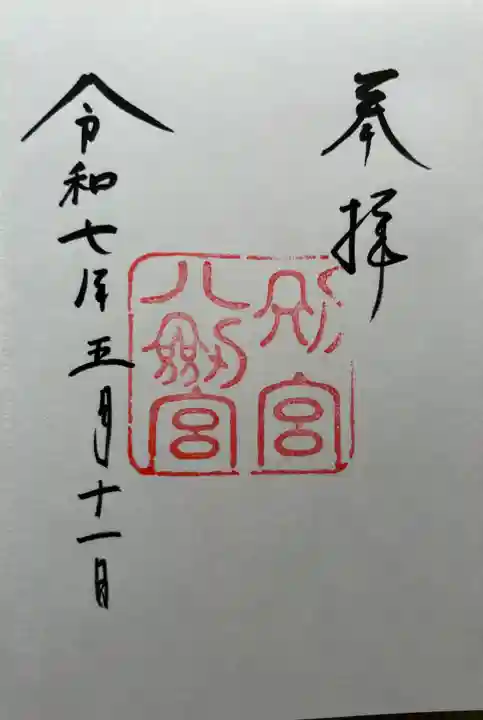 奉拝
別宮
八剱宮
令和七年五月十一日